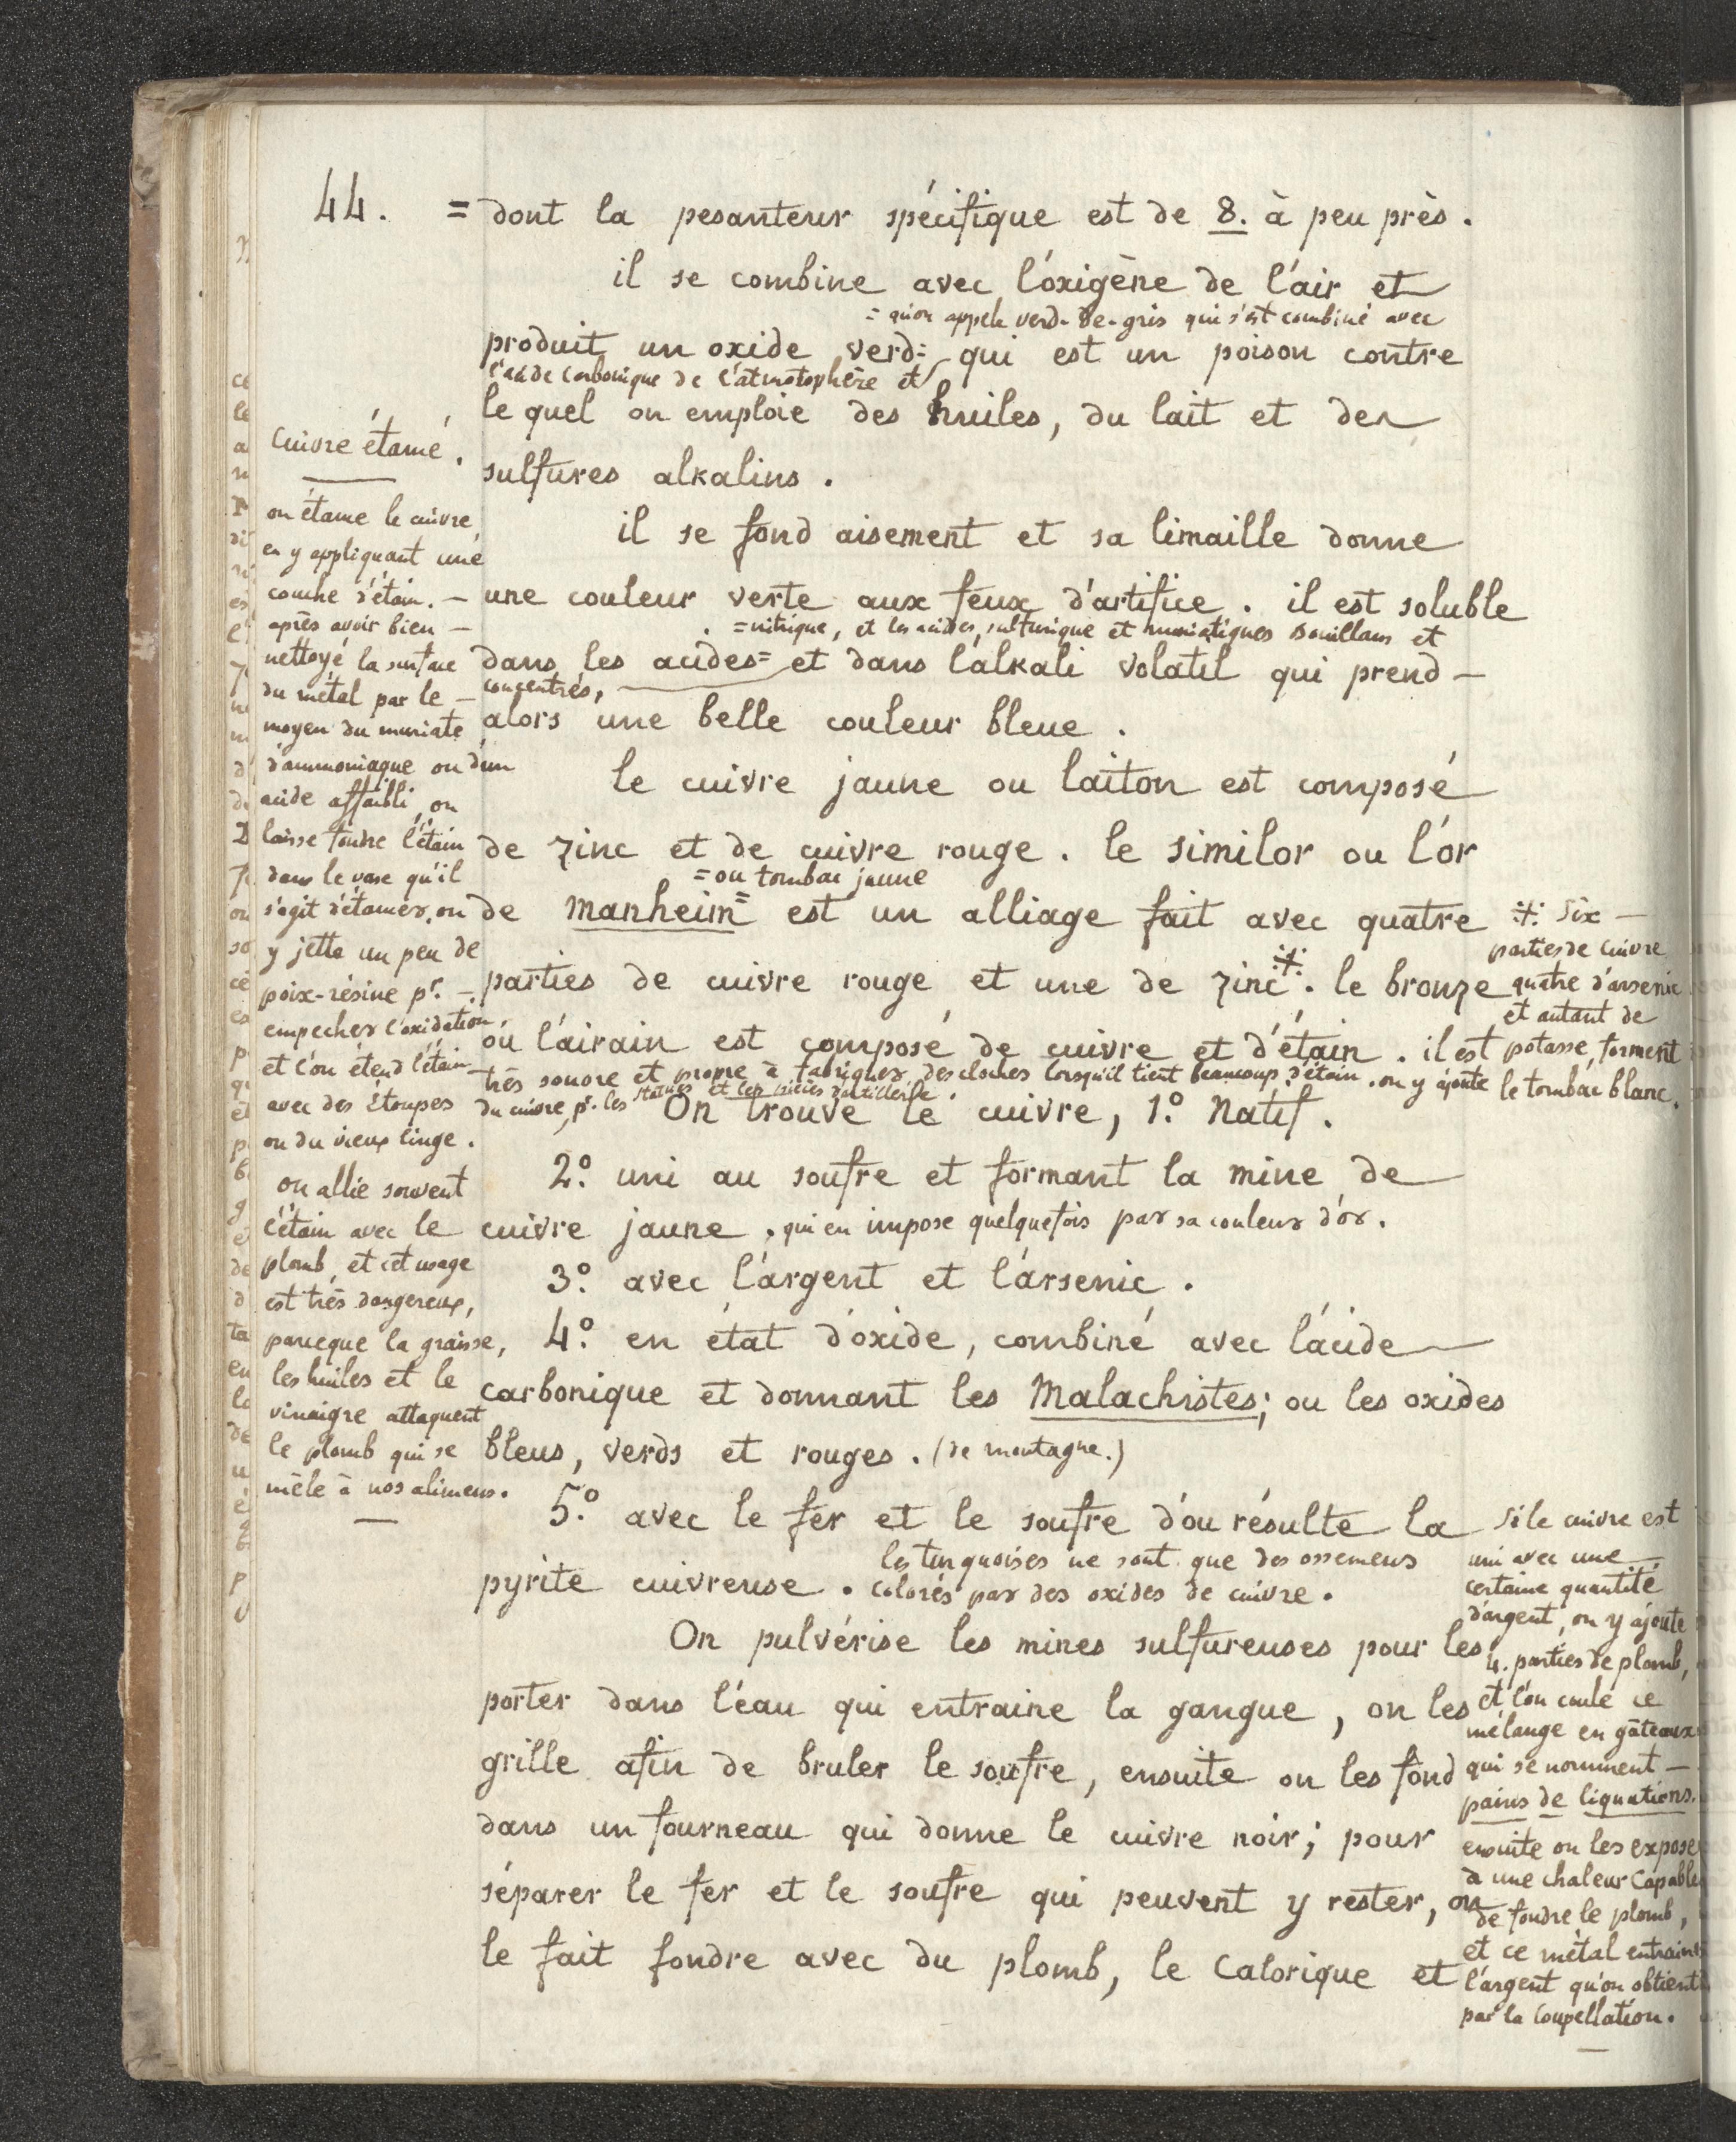 44. = dont la pesanteur spécifique est de 8. à peu près.
il se combine avec l'oxigène de l'air et
= qu'on appele verd-de-gris qui s'est combiné avec
produit un oxide verd= qui est un poison contre
l'acide carbonique de l'atmotsphère et
le quel on emploie des huiles, du lait et des
sulfures alkalins.
il se fond aisement et sa limaille donne
une couleur verte aux feux d'artifice. il est soluble
= nitrique, et les acides, sulfurique et muriatiques bouillans et
dans les acides= et dans l'alkali volatil qui prend —
concentrés,
alors une belle couleur bleue.
le cuivre jaune ou laiton est composé
de zinc et de cuivre rouge. le similor ou l'or
= ou tombac jaune
de Manheim= est un alliage fait avec quatre
parties de cuivre rouge et une de zinc ⁜. le bronze
ou l'airain est composé de cuivre et d'étain. il est
très sonore et propre à fabriquer des cloches lorsqu'il tient beaucoup d'étain. on y ajoute
du cuivre, pr. les statues et les pièces d'artillerie.
On trouve le cuivre, 1.° Natif.
2.° uni au soufre et formant la mine de
cuivre jaune, qui en impose quelquefois par sa couleur d'or.
3.° avec l'argent et l'arsenic.
4.° en état d'oxide, combiné avec l'acide
carbonique et donnant les Malachistes; ou les oxides
bleus, verds et rouges. (de montagne.)
5.° avec le fer et le soufre d'ou résulte la
les turquoises ne sont que des ossemens
pyrite cuivreuse. colorés par des oxides de cuivre.
On pulvérise les mines sulfureuses pour les
porter dans l'éau qui entraine la gangue, on les
grille afin de bruler le soufre, ensuite on les fond
dans un fourneau qui donne le cuivre noir; pour
séparer le fer et le soufre qui peuvent y rester, on
le fait fondre avec du plomb, le Calorique et
Cuivre étamé.
on étame le cuivre
en y appliquant une
couche d'étain. —
après avoir bien —
nettoyé la surface
du métal par le —
moyen du muriate
d'ammoniaque ou d'un
acide affaibli, on
laisse fondre l'étain
dans le vase qu'il
s'agit d'étamer, on
y jette un peu de
poix-résine pr. —
empecher l'oxidation,
et l'on étend l'étain
avec des étoupes
ou du vieux linge.
on allie souvent
l'étain avec le
plomb, et cet usage
est très dangereux,
parceque la graisse,
les huiles et le
vinaigre attaquent
le plomb qui se
mêle à nos alimens.
⁜ Six —
parties de cuivre
quatre d'arsenic
et autant de
potasse, forment
le tombac blanc.
Si le cuivre est
uni avec une
certaine quantité
d'argent, on y ajoute
4. parties de plomb,
et l'on coule ce
mélange en gâteaux
qui se nomment —
pains de liquations.
ensuite on les expose
à une chaleur Capable
de fondre le plomb,
et ce métal entraine
l'argent qu'on obtient
par la Coupellation.